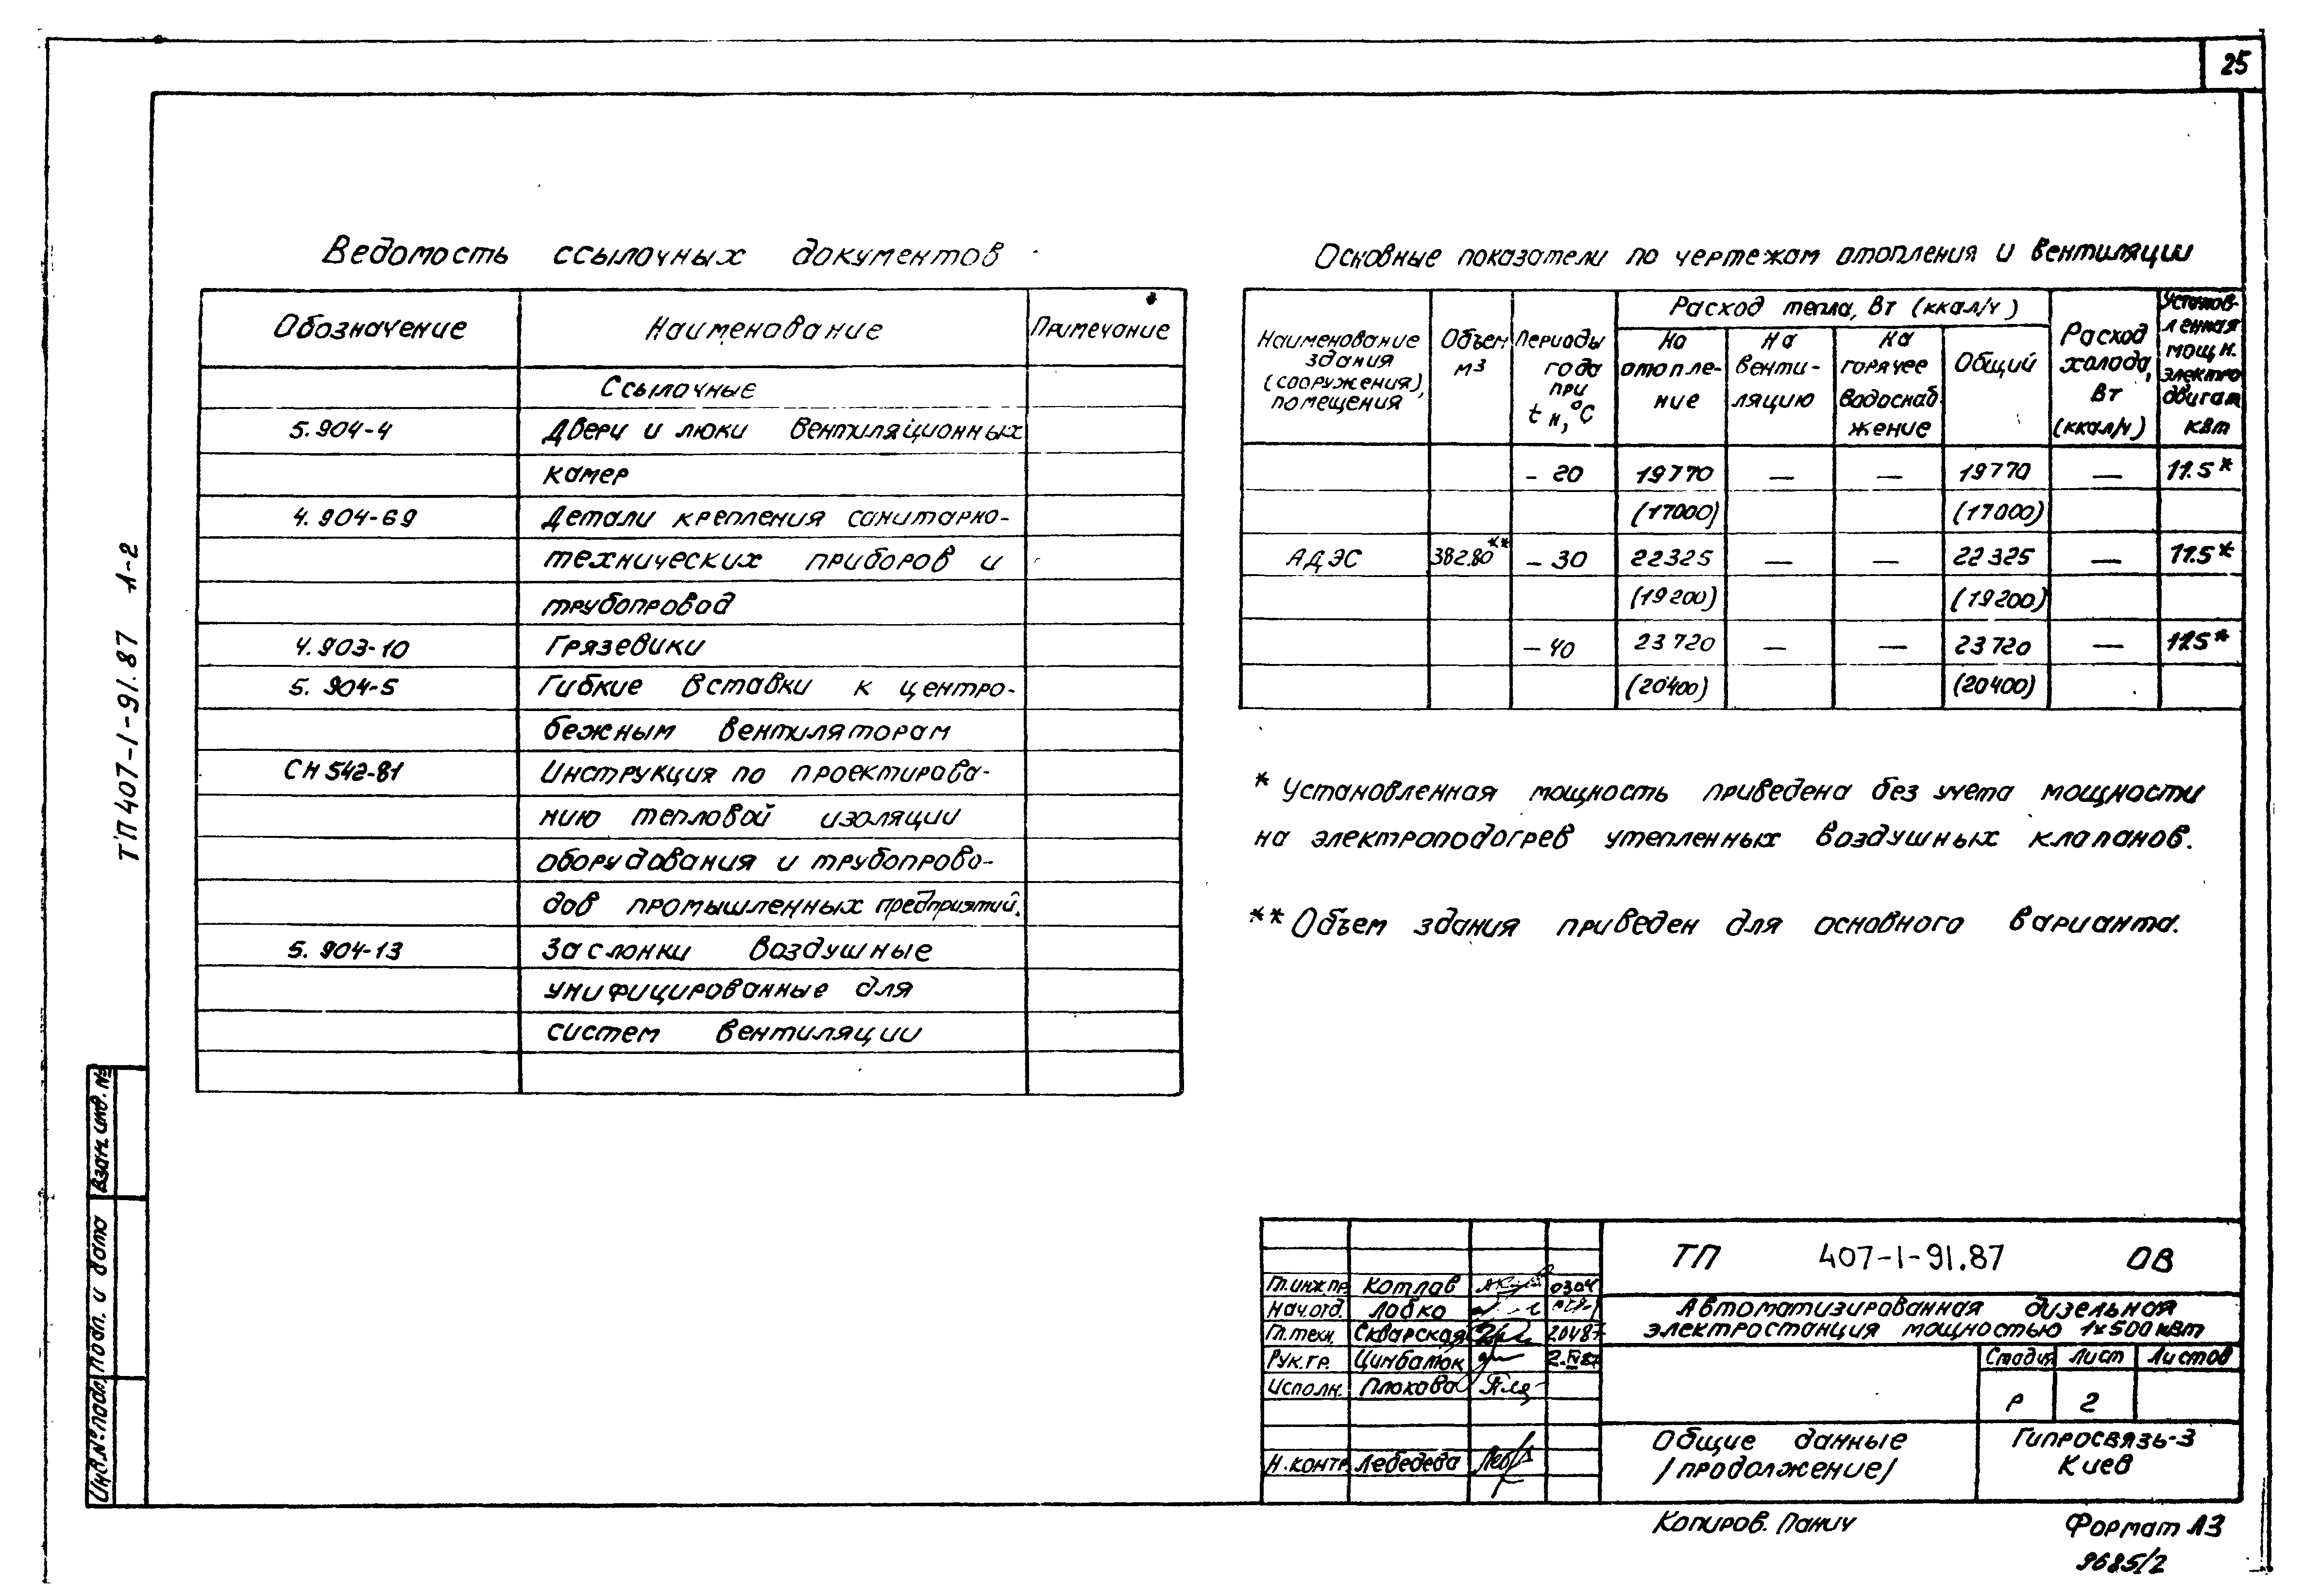 25
Ведомость ссылочных документов
Обозначение Наименование Примечание
Ссылочные
5.904-4 Двери и люки вентиляционных
камер
4.904-69 Детали крепления санитарно-
технических приборов и
трубопровод
4.903-10 Грязевики
5.904-5 Гибкие вставки к центро-
бежным вентиляторам
СН 542-81 Инструкция по проектирова-
нию тепловой изоляции
оборудования и трубопрово-
дов промышленных предприятий.
5.904-13 Заслонки воздушные
унифицированные для
систем вентиляции
Основные показатели по чертежам отопления и вентиляции
Наименование
здания
(сооружения),
помещения
Объем
м³
Периоды
года
при
tн, °С
Расход тепла, Вт (ккал/ч)
На
отопле-
ние
На
венти-
ляцию
На
горячее
водоснаб
жение
Общий
Расход
холода,
Вт
(ккал/ч)
Установ-
ленная
мощн.
электро
двигат
кВт
- 20 19770 — — 19770 — 11.5*
(17000) (17000)
АДЭС 382.80** - 30 22325 — — 22325 — 11.5*
(19200) (19200)
- 40 23720 — — 23720 — 11.5*
(20400) (20400)
* Установленная мощность приведена без учета мощности
на электроподогрев утепленных воздушных клапанов.
** Объем здания приведен для основного варианта.
ТП 407-1-91.87 А-2
Взам. инв. №
Подп. и дата
Инв. № подл.
ТП 407-1-91.87 ОВ
Гл.инж.пр. Котлов 0304
Нач.отд. Лобко
Гл.техн. Скварская 20487
Рук.гр. Цимбалюк 2.IV87
Исполн. Плохова
Н.контр. Лебедева
Автоматизированная дизельная
электростанция мощностью 1х500 кВт
Стадия Лист Листов
Р 2
Общие данные
/продолжение/
Гипросвязь-3
Киев
Копиров. Панич
Формат А3
9685/2